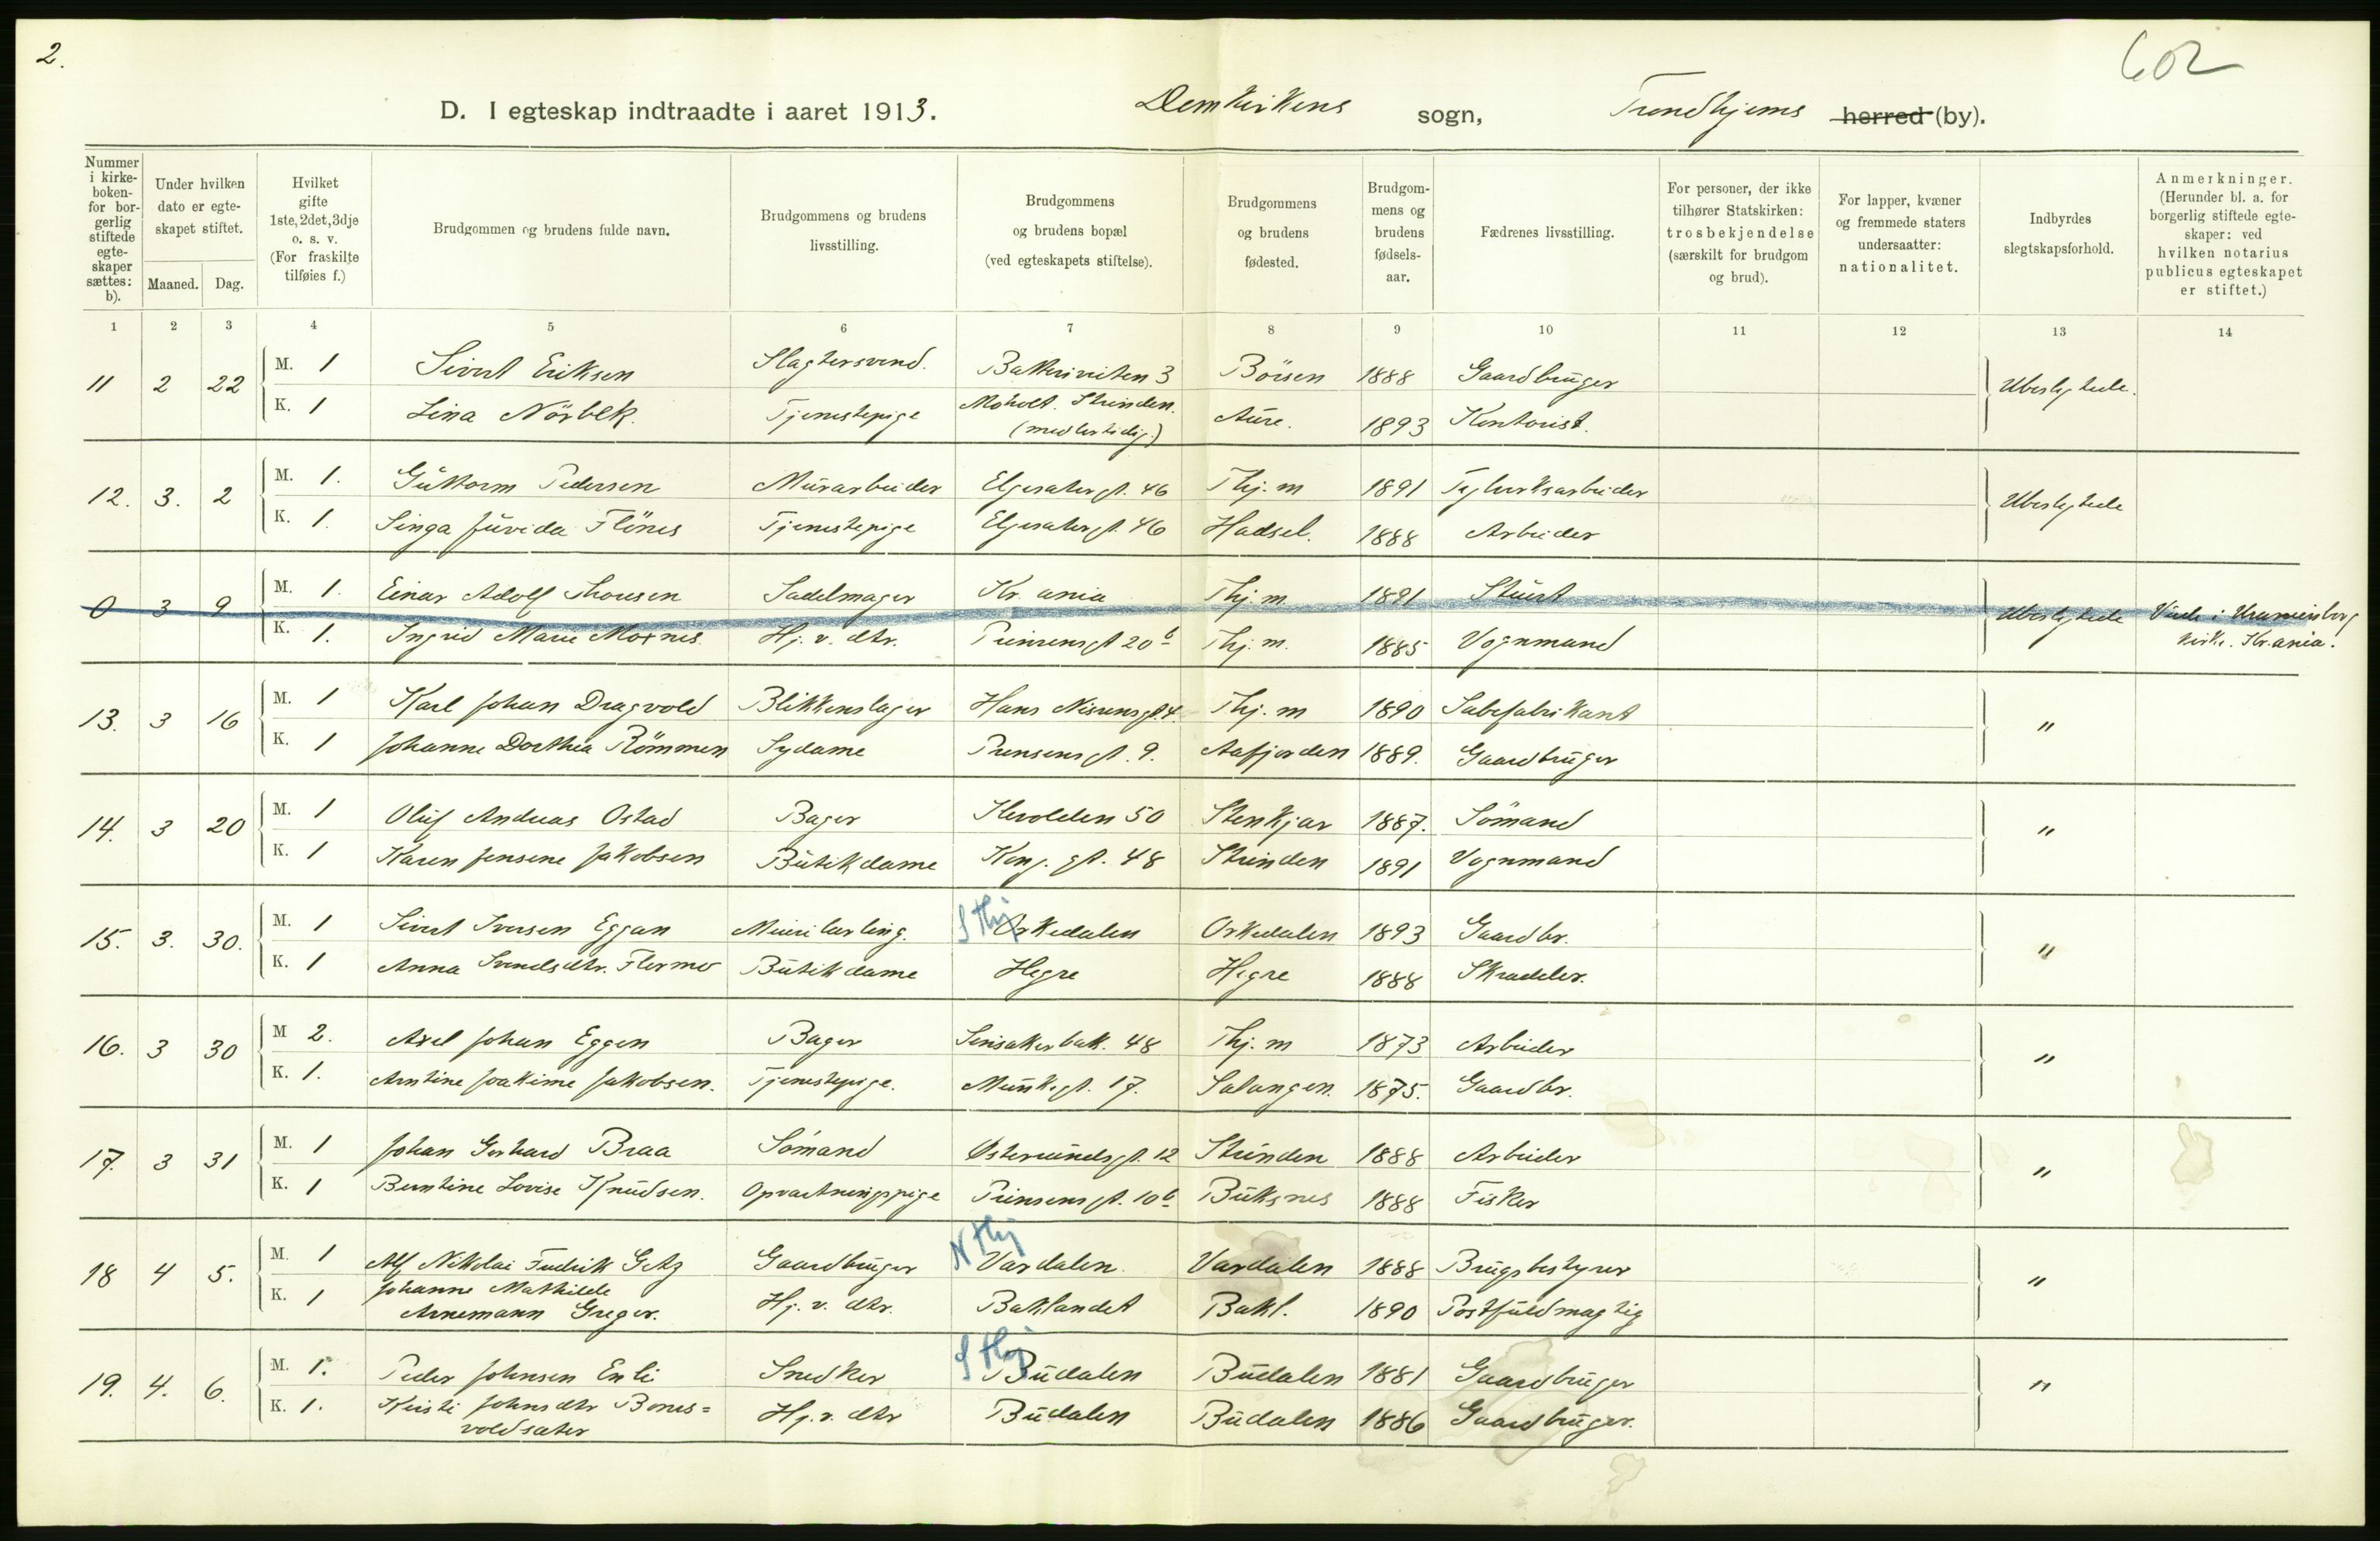 2.
602
D. I egteskap indtraadte i aaret 1913. Domkirkens sogn, Trondhjems herred (by).
Nummer i kirke-boken- for bor-gerlig stiftede egte-skaper sættes: b).
Under hvilken dato er egte-skapet stiftet.
Maaned. Dag.
Hvilket gifte 1ste, 2det, 3dje o. s. v. (For fraskilte tilføies f.)
Brudgommen og brudens fulde navn.
Brudgommens og brudens livsstilling.
Brudgommens og brudens bopæl (ved egteskapets stiftelse).
Brudgommens og brudens fødested.
Brudgom-mens og brudens fødsels-aar.
Fædrenes livsstilling.
For personer, der ikke tilhører Statskirken: trosbekjendelse (særskilt for brudgom og brud).
For lapper, kvæner og fremmede staters undersaatter: nationalitet.
Indbyrdes slegtskapsforhold.
Anmerkninger. (Herunder bl. a. for borgerlig stiftede egte-skaper: ved hvilken notarius publicus egteskapet er stiftet.)
1 2 3 4 5 6 7 8 9 10 11 12 13 14
11 2 22 M. 1 Sivert Eriksen Slagtersvend. Bakkeviten 3 Börsen 1888 Gaardbruger Ubeslegtede.
K. 1 Lina Nörbek. Tjenestepige Moholt. Strinden. (midlertidig.) Aure. 1893 Kontorist.
12. 3. 2 M. 1. Guttorm Pedersen Murarbeider Elgesætergt. 46 Thj.m 1891 Teglverksarbeider Ubeslegtede
K. 1. Singa Juvida Flönes Tjenestepige Elgesætergt. 46 Hadsel. 1888 Arbeider
0 3 9 M. 1. Einar Adolf Thonsen Sadelmager Kr.ania Thj.m 1891 Stuert Ubeslegtede Viede i Uranienborg
K. 1. Ingrid Marie Moxnes Hj. v. dtr. Prinsensgt 20b Thj.m. 1885 Vognmand kirke. Kr.ania.
13. 3 16 M. 1 Karl Johan Dragvold Blikkenslager Hans Nissensgt. 4. Thj.m 1890 Sæbefabrikant "
K. 1 Johanne Dorthea Römmen Sydame Prinsensgt. 9. Aafjorden 1889. Gaardbruger
14. 3 20 M. 1 Oluf Andreas Ostad Bager Ilevolden 50 Stenkjær 1887. Sömand "
K. 1 Karen Jensine Jakobsen Butikdame Kong. gt. 48 Strinden 1891 Vognmand
15. 3. 30. M. 1 Sivert Iversen Eggan Meierilærling. S Thj Orkedalen Orkedalen 1893 Gaardbr. "
K. 1 Anna Svendsdtr. Flormo Butikdame Hegre Hegre 1888 Skrædder.
16. 3 30 M 2. Axel Johan Eggen Bager Sinsakerbak. 48 Thj.m 1873 Arbeider "
K. 1. Arntine Joakime Jakobsen. Tjenestepige. Munkegt. 17. Salangen. 1875. Gaardbr.
17. 3 31 M. 1 Johan Gerhard Braa Sömand Østersundsgt. 12 Strinden 1888 Arbeider "
K. 1 Berntine Lovise Knudsen. Opvartningspige Prinsensgt. 10b Buksnes 1888 Fisker
18 4 5. M. 1 Alf Nikolai Fredrik Getz Gaardbruger N Thj Værdalen. Værdalen 1888 Brugsbestyrer "
K. 1 Johanne Mathilde
Arnemann Greger. Hj. v. dtr. Baklandet Bakl. 1890 Postfuldmægtig
19. 4. 6. M. 1. Peder Johnsen Enli Snedker S Thj Budalen Budalen 1881 Gaardbruger "
K. 1. Kirsti Johnsdtr Bones=
voldsæter Hj. v. dtr Budalen Budalen 1886 Gaardbruger.